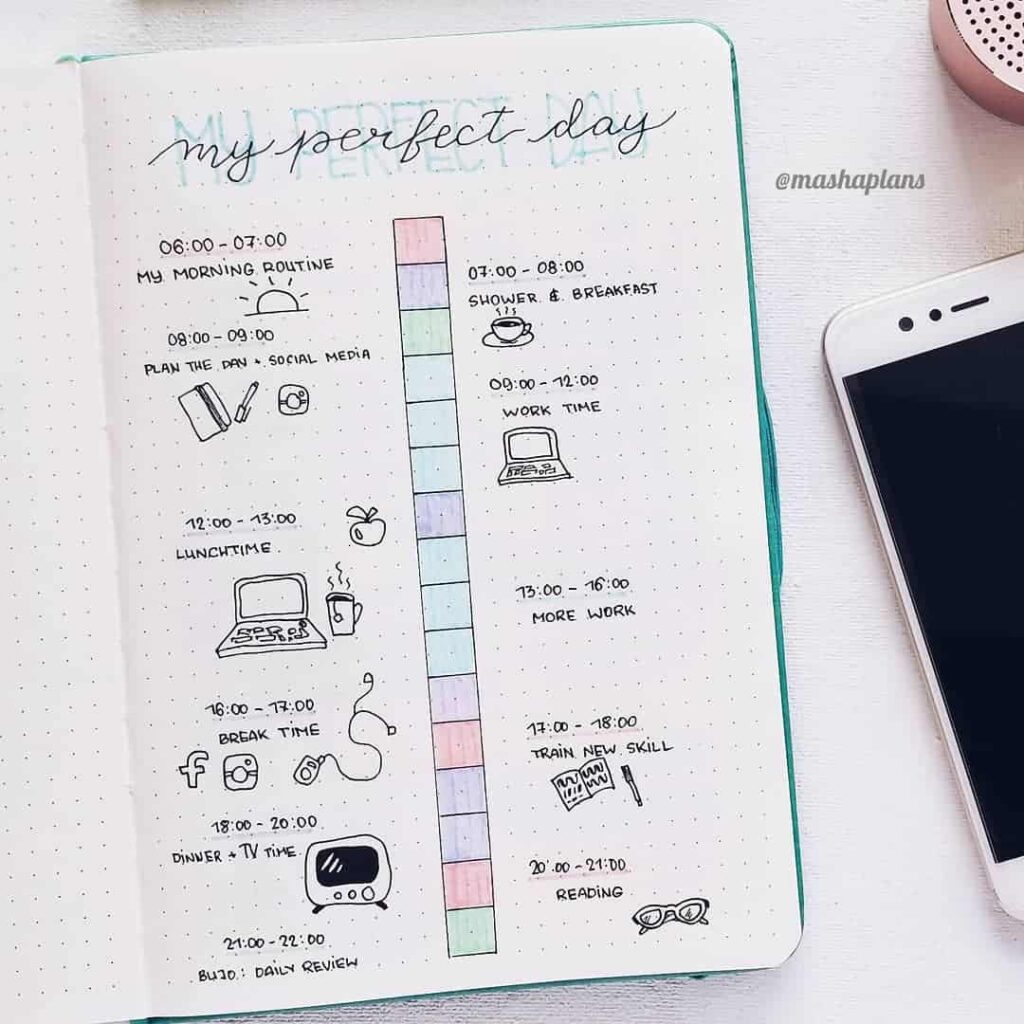 my perfect day
MY PERFECT DAY
@mashaplans
06:00 - 07:00
MY MORNING ROUTINE
07:00 - 08:00
SHOWER & BREAKFAST
08:00 - 09:00
PLAN THE DAY + SOCIAL MEDIA
09:00 - 12:00
WORK TIME
12:00 - 13:00
LUNCHTIME
13:00 - 16:00
MORE WORK
16:00 - 17:00
BREAK TIME
f
17:00 - 18:00
TRAIN NEW SKILL
18:00 - 20:00
DINNER + TV TIME
20:00 - 21:00
READING
21:00 - 22:00
BUJO: DAILY REVIEW